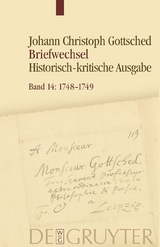 Johann Christoph Gottsched
Briefwechsel
Historisch-kritische Ausgabe
Band 14: 1748–1749
A Monsieur
Monsieur Gottsched,
Philosophie & Poesie,
a
Leipzig
DE GRUYTER